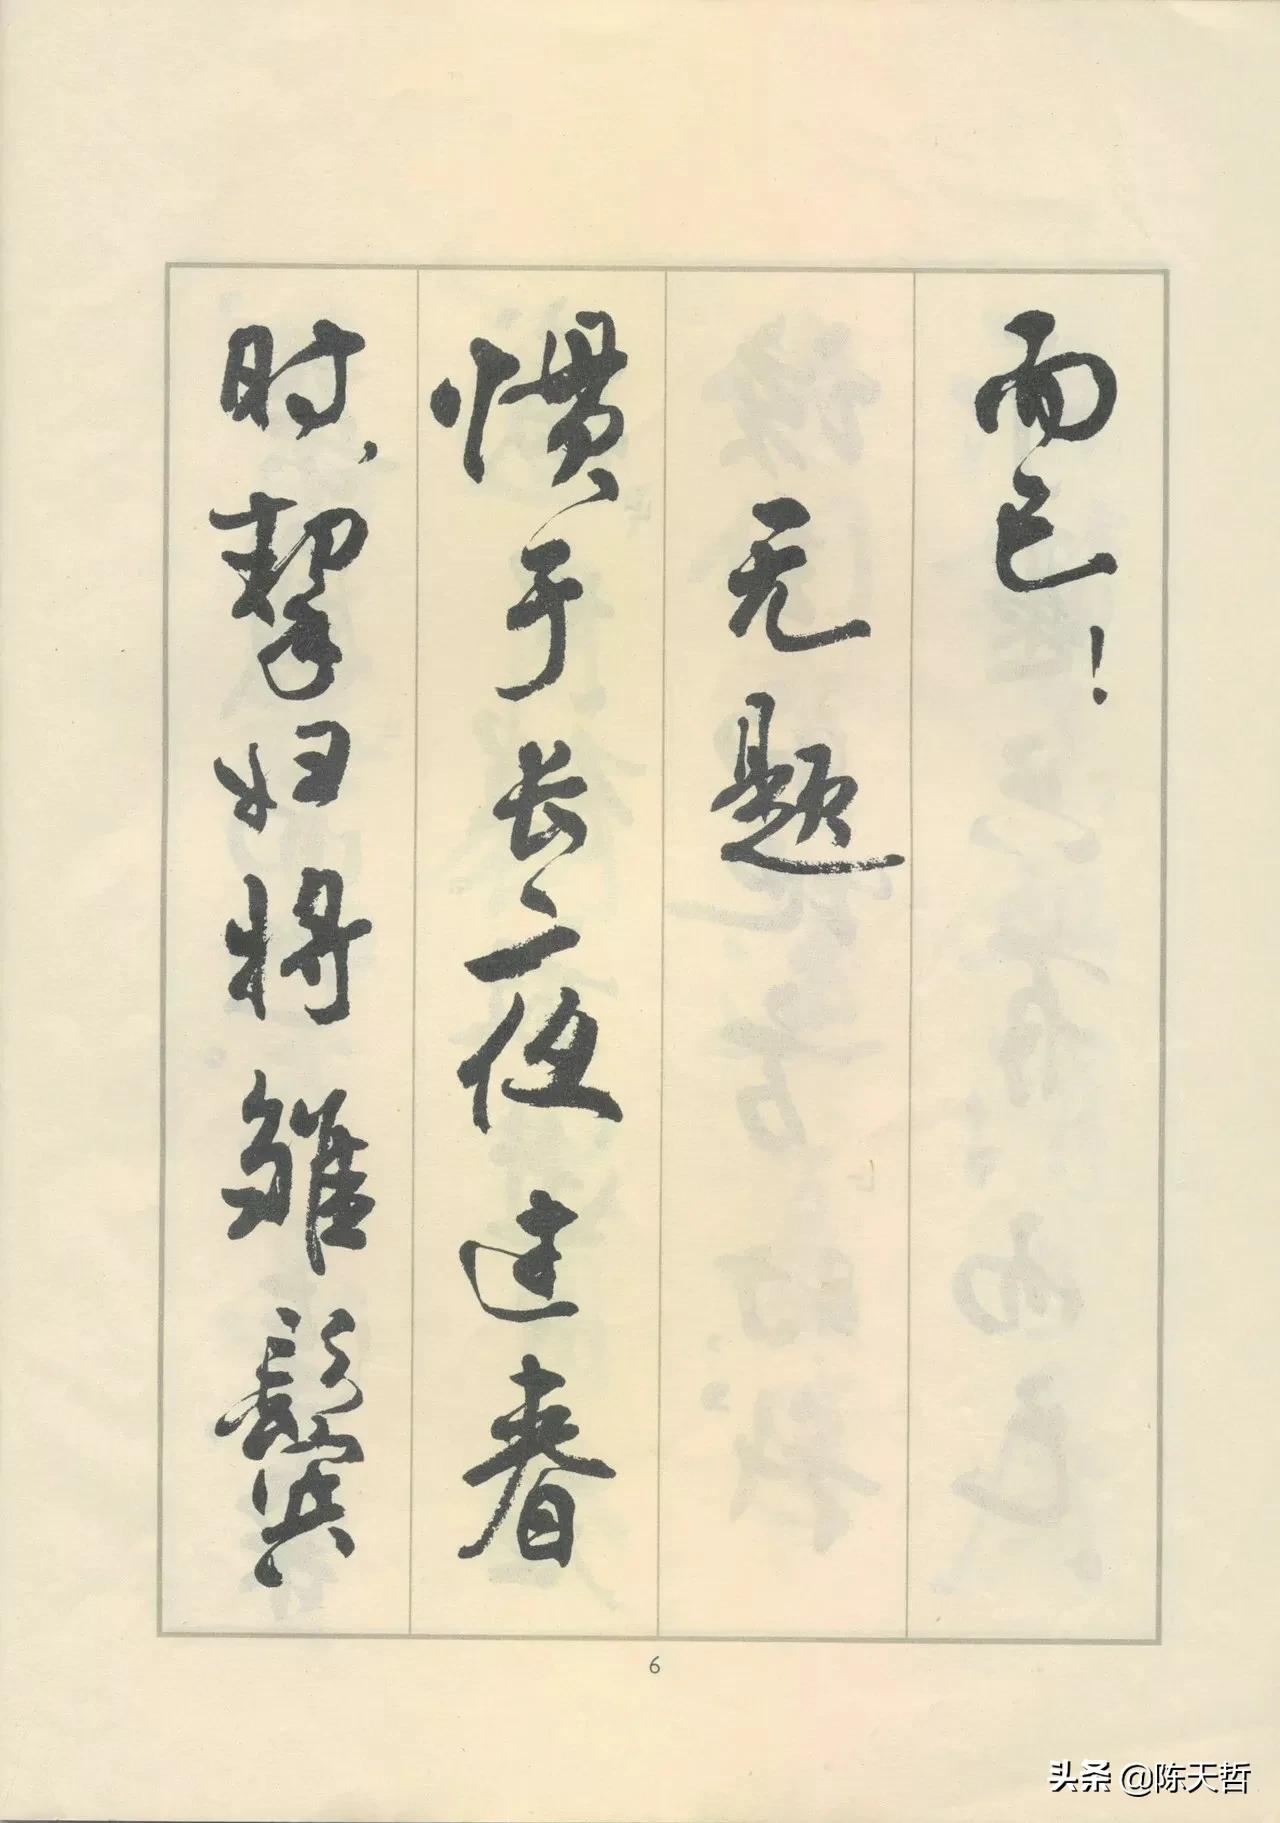 而已！
无题
惯于长夜过春
时，挈妇将雏鬓
6
头条 @陈天哲